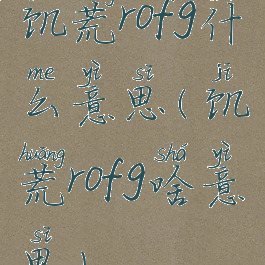 饥荒rofg什
me yì sī jī
么意思(饥
huāng shá yì
荒rofg啥意
sī
思)